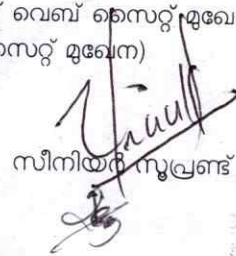 വെബ് സൈറ്റ് മുഖേ
സൈറ്റ് മുഖേന)
സീനിയർ സൂപ്രണ്ട്